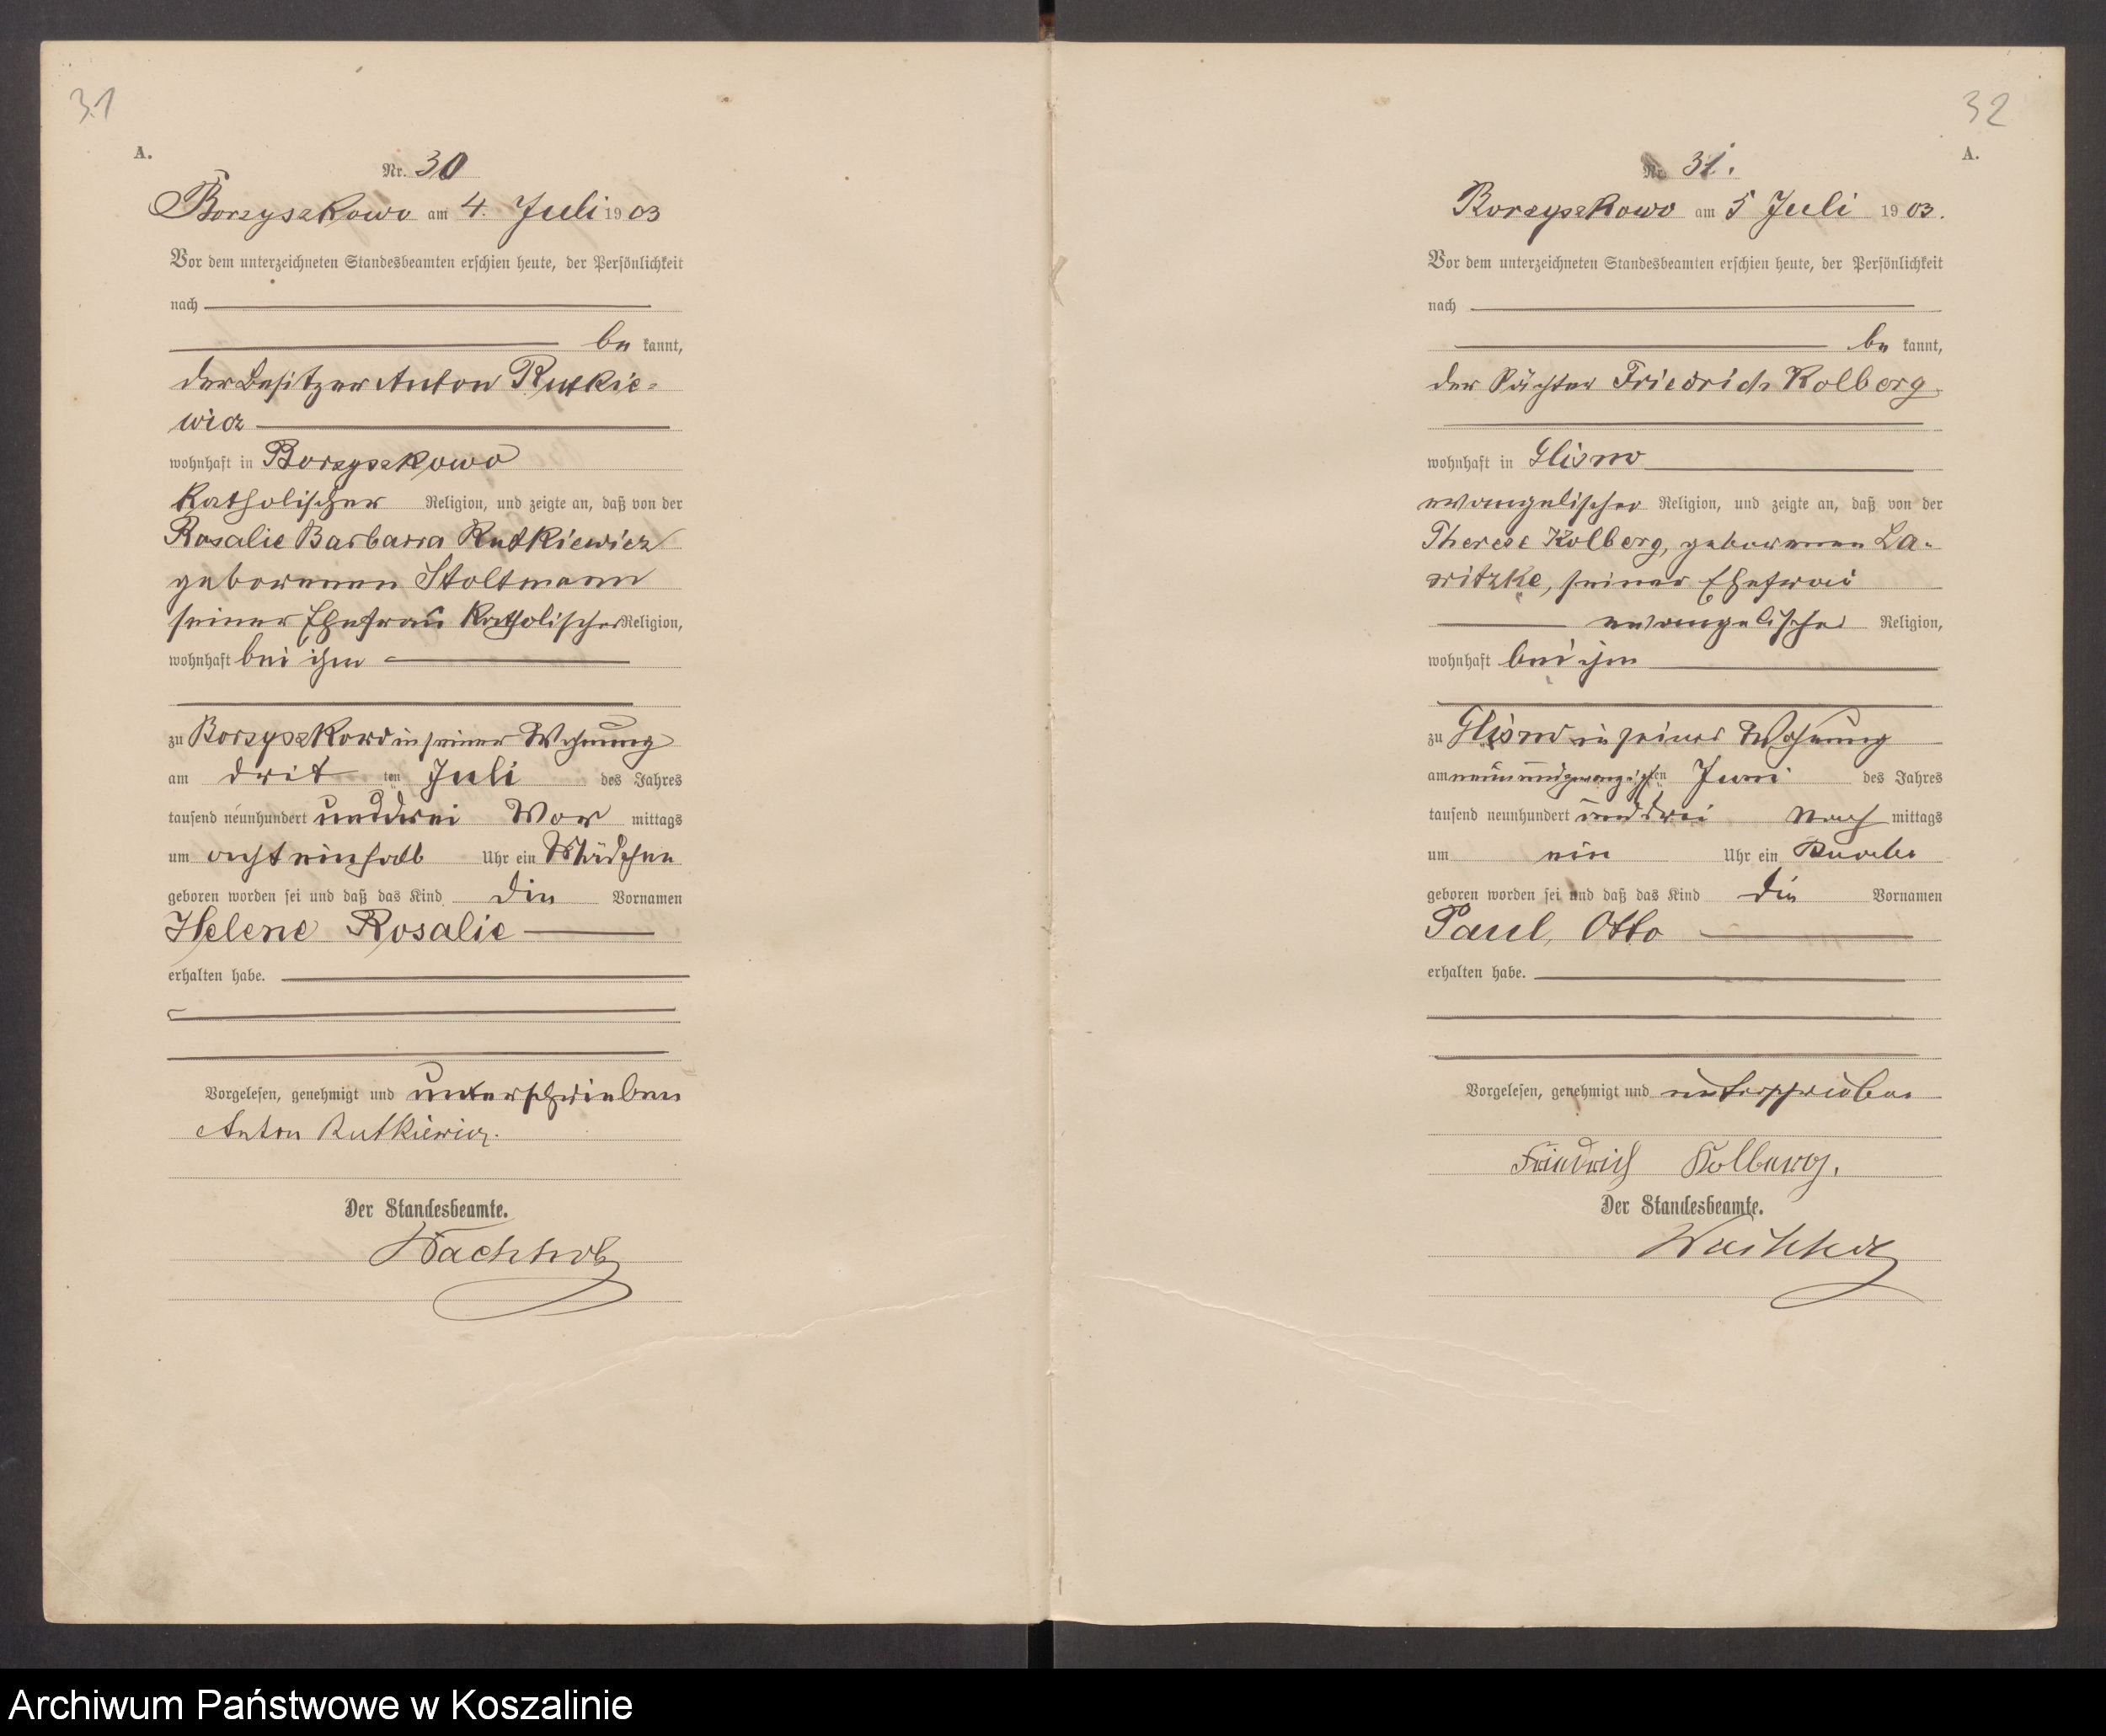 31
A.
Nr. 30
Borzyszkowo am 4. Juli 1903
Vor dem unterzeichneten Standesbeamten erschien heute, der Persönlichkeit
nach
be kannt,
der Besitzer Anton Rutkie=
wicz
wohnhaft in Borzyszkowo
katholischer Religion, und zeigte an, daß von der
Rosalie Barbara Rutkiewicz
geborenen Stoltmann
seiner Ehefrau katholischer Religion,
wohnhaft bei ihm
zu Borzyszkowo in seiner Wohnung
am drit ten Juli des Jahres
tausend neunhundert und drei Vor mittags
um acht einhalb Uhr ein Mädchen
geboren worden sei und daß das Kind die Vornamen
Helene Rosalie
erhalten habe.
Vorgelesen, genehmigt und unterschrieben
Anton Rutkiewicz.
Der Standesbeamte.
Wachholz
32
A.
Nr. 31.
Borzyszkowo am 5 Juli 1903.
Vor dem unterzeichneten Standesbeamten erschien heute, der Persönlichkeit
nach
be kannt,
der Pächter Friedrich Kolberg
wohnhaft in Glisno
evangelischer Religion, und zeigte an, daß von der
Therese Kolberg, geborenen La-
seiner Ehefrau
evangelischer Religion,
wohnhaft bei ihm
zu Glisno in seiner Wohnung
am neunundzwanzigsten Juni des Jahres
tausend neunhundert und drei Nach mittags
um ein Uhr ein Knabe
geboren worden sei und daß das Kind die Vornamen
Paul, Otto
erhalten habe.
Vorgelesen, genehmigt und unterschrieben
Friedrich Kolberg.
Der Standesbeamte.
Wachholz
Archiwum Państwowe w Koszalinie